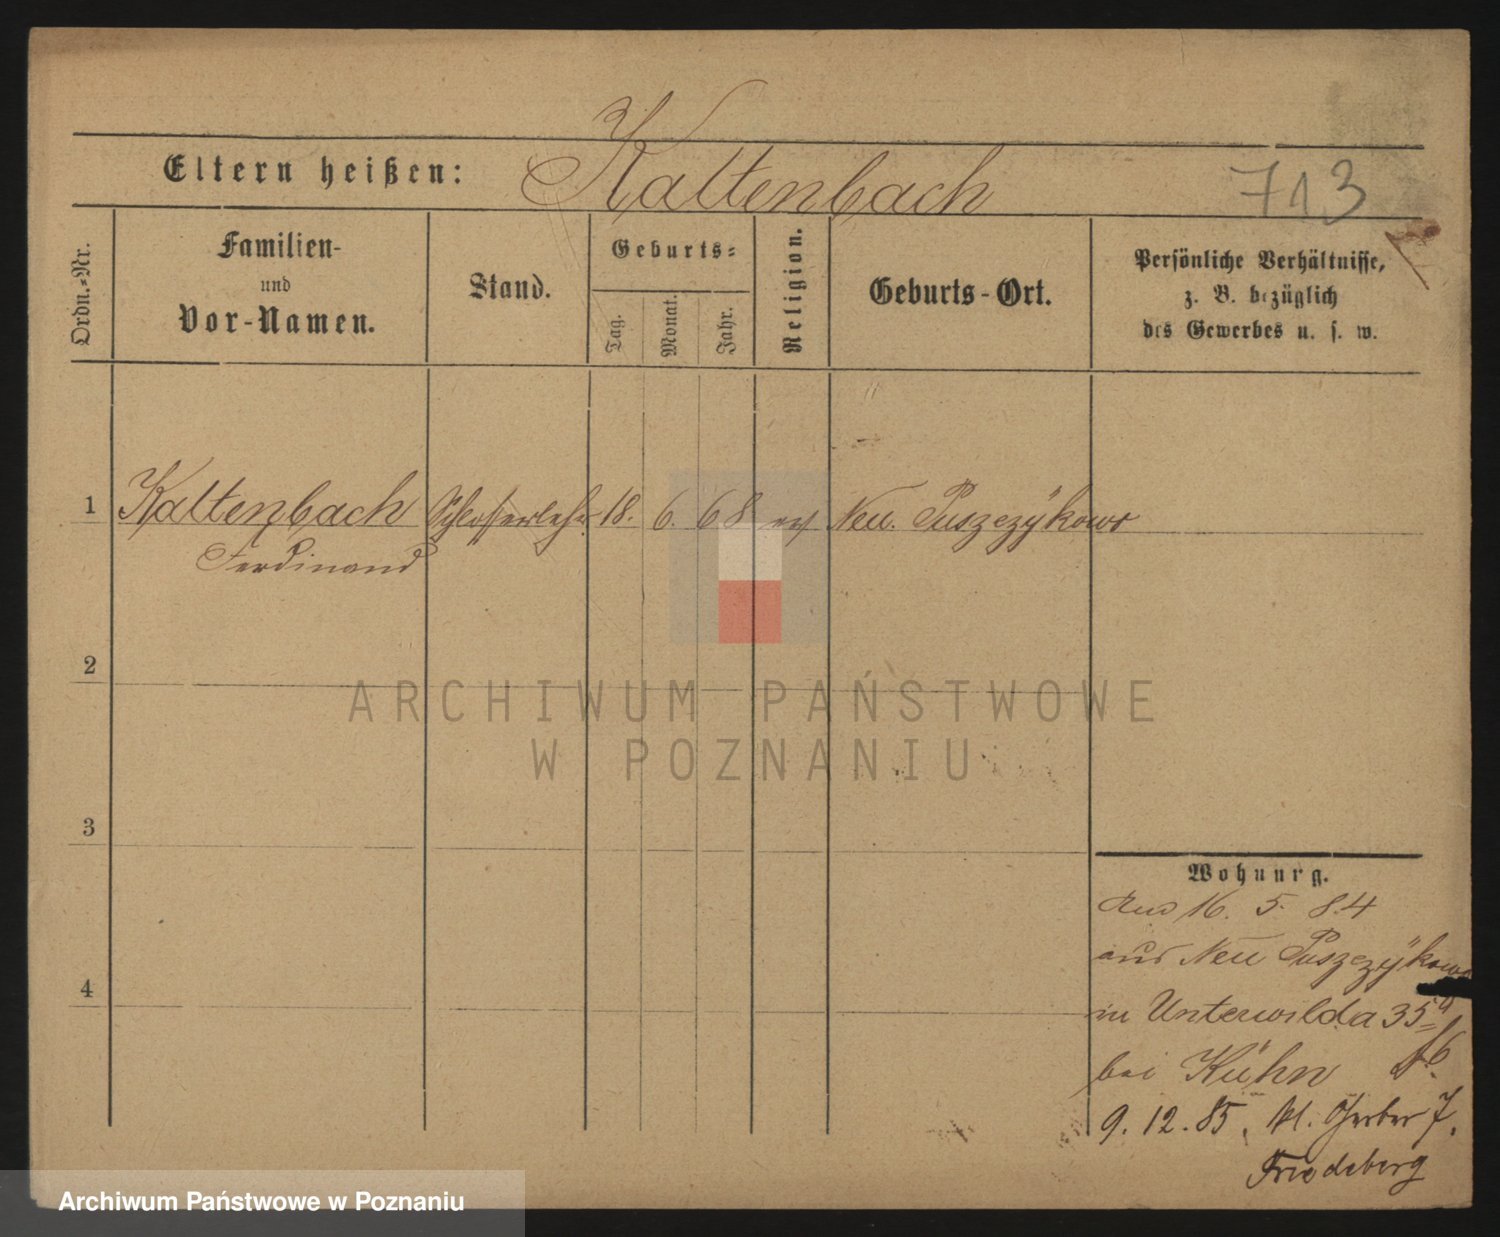 Eltern heißen: Kaltenbach
713
Ordn.-Nr.
Familien-
und
Vor-Namen.
Stand.
Geburts-
Tag.
Monat.
Jahr.
Religion.
Geburts-Ort.
Persönliche Verhältnisse,
z. B. bezüglich
des Gewerbes u. s. w.
1 Kaltenbach Schlosserlehr 18. 6. 68 Neu. Puszczÿkowo
Ferdinand
2
ARCHIWUM PAŃSTWOWE
W POZNANIU
3
Wohnung.
16. 5. 84
aus Neu Puszczÿkowo
in Unterwilda 35
bei Kühn
9. 12. 85. kl. Gerber 7.
Friedeberg
4
Archiwum Państwowe w Poznaniu